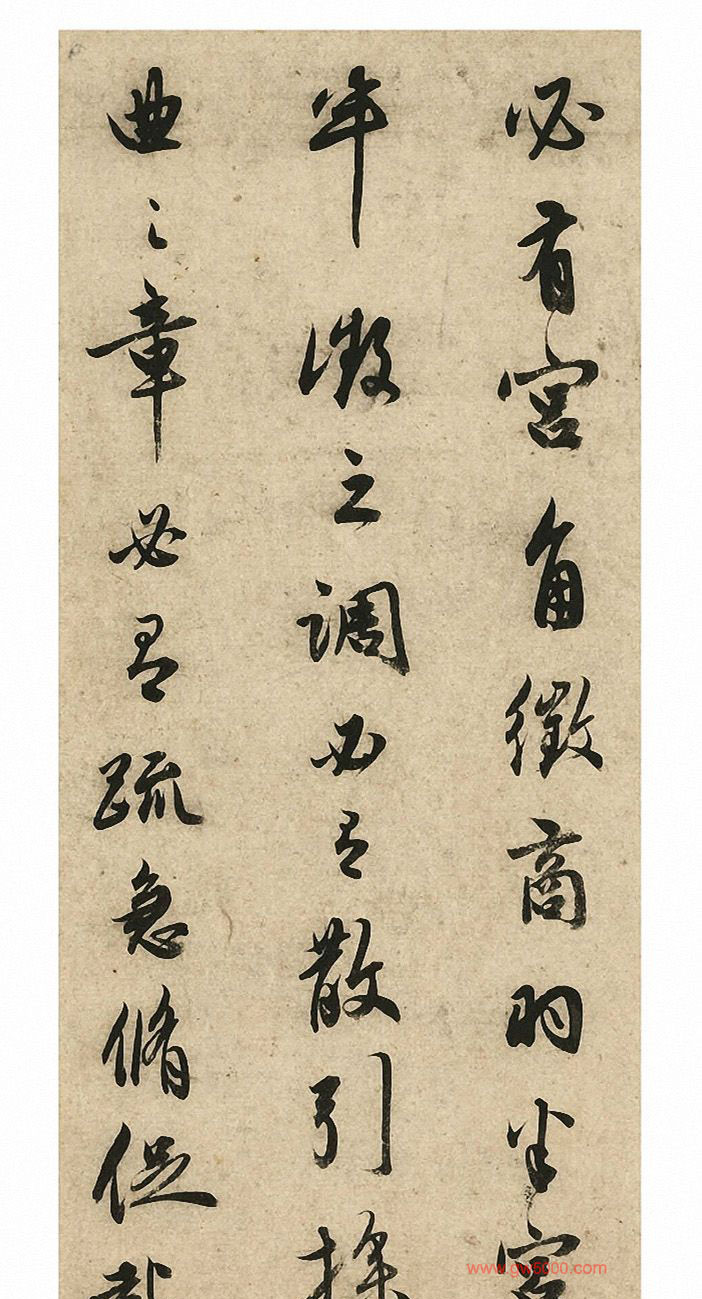 必有宫角徵商羽半宫
半徵之调必有散引操
曲之章必有疏急脩促
www.gw5000.com